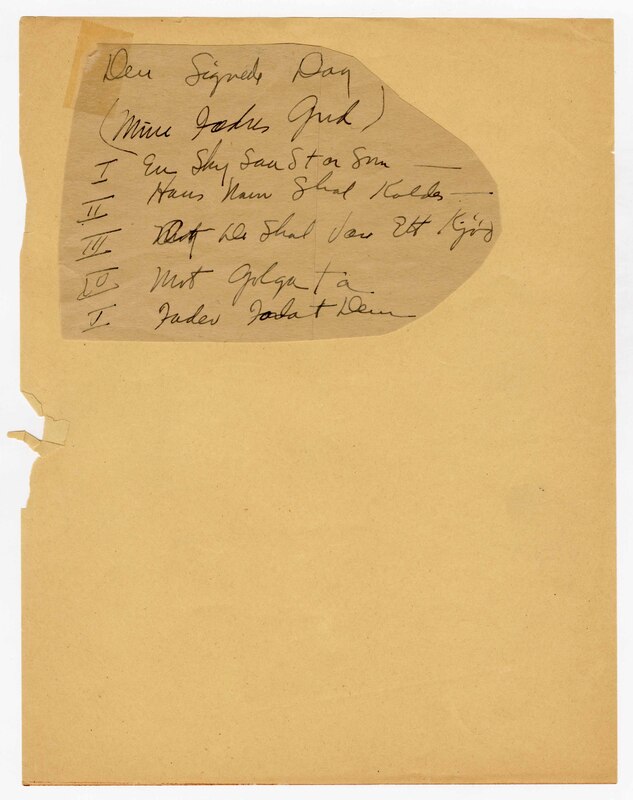 Den Signede Dag
(Mine Fædres Gud)
I En Sky Saa Stor Som —
II Hans Navn Skal Kaldes —
III De Skal Være Ett Kjød
IV Mot Golgata
I Fader Forlat Dem